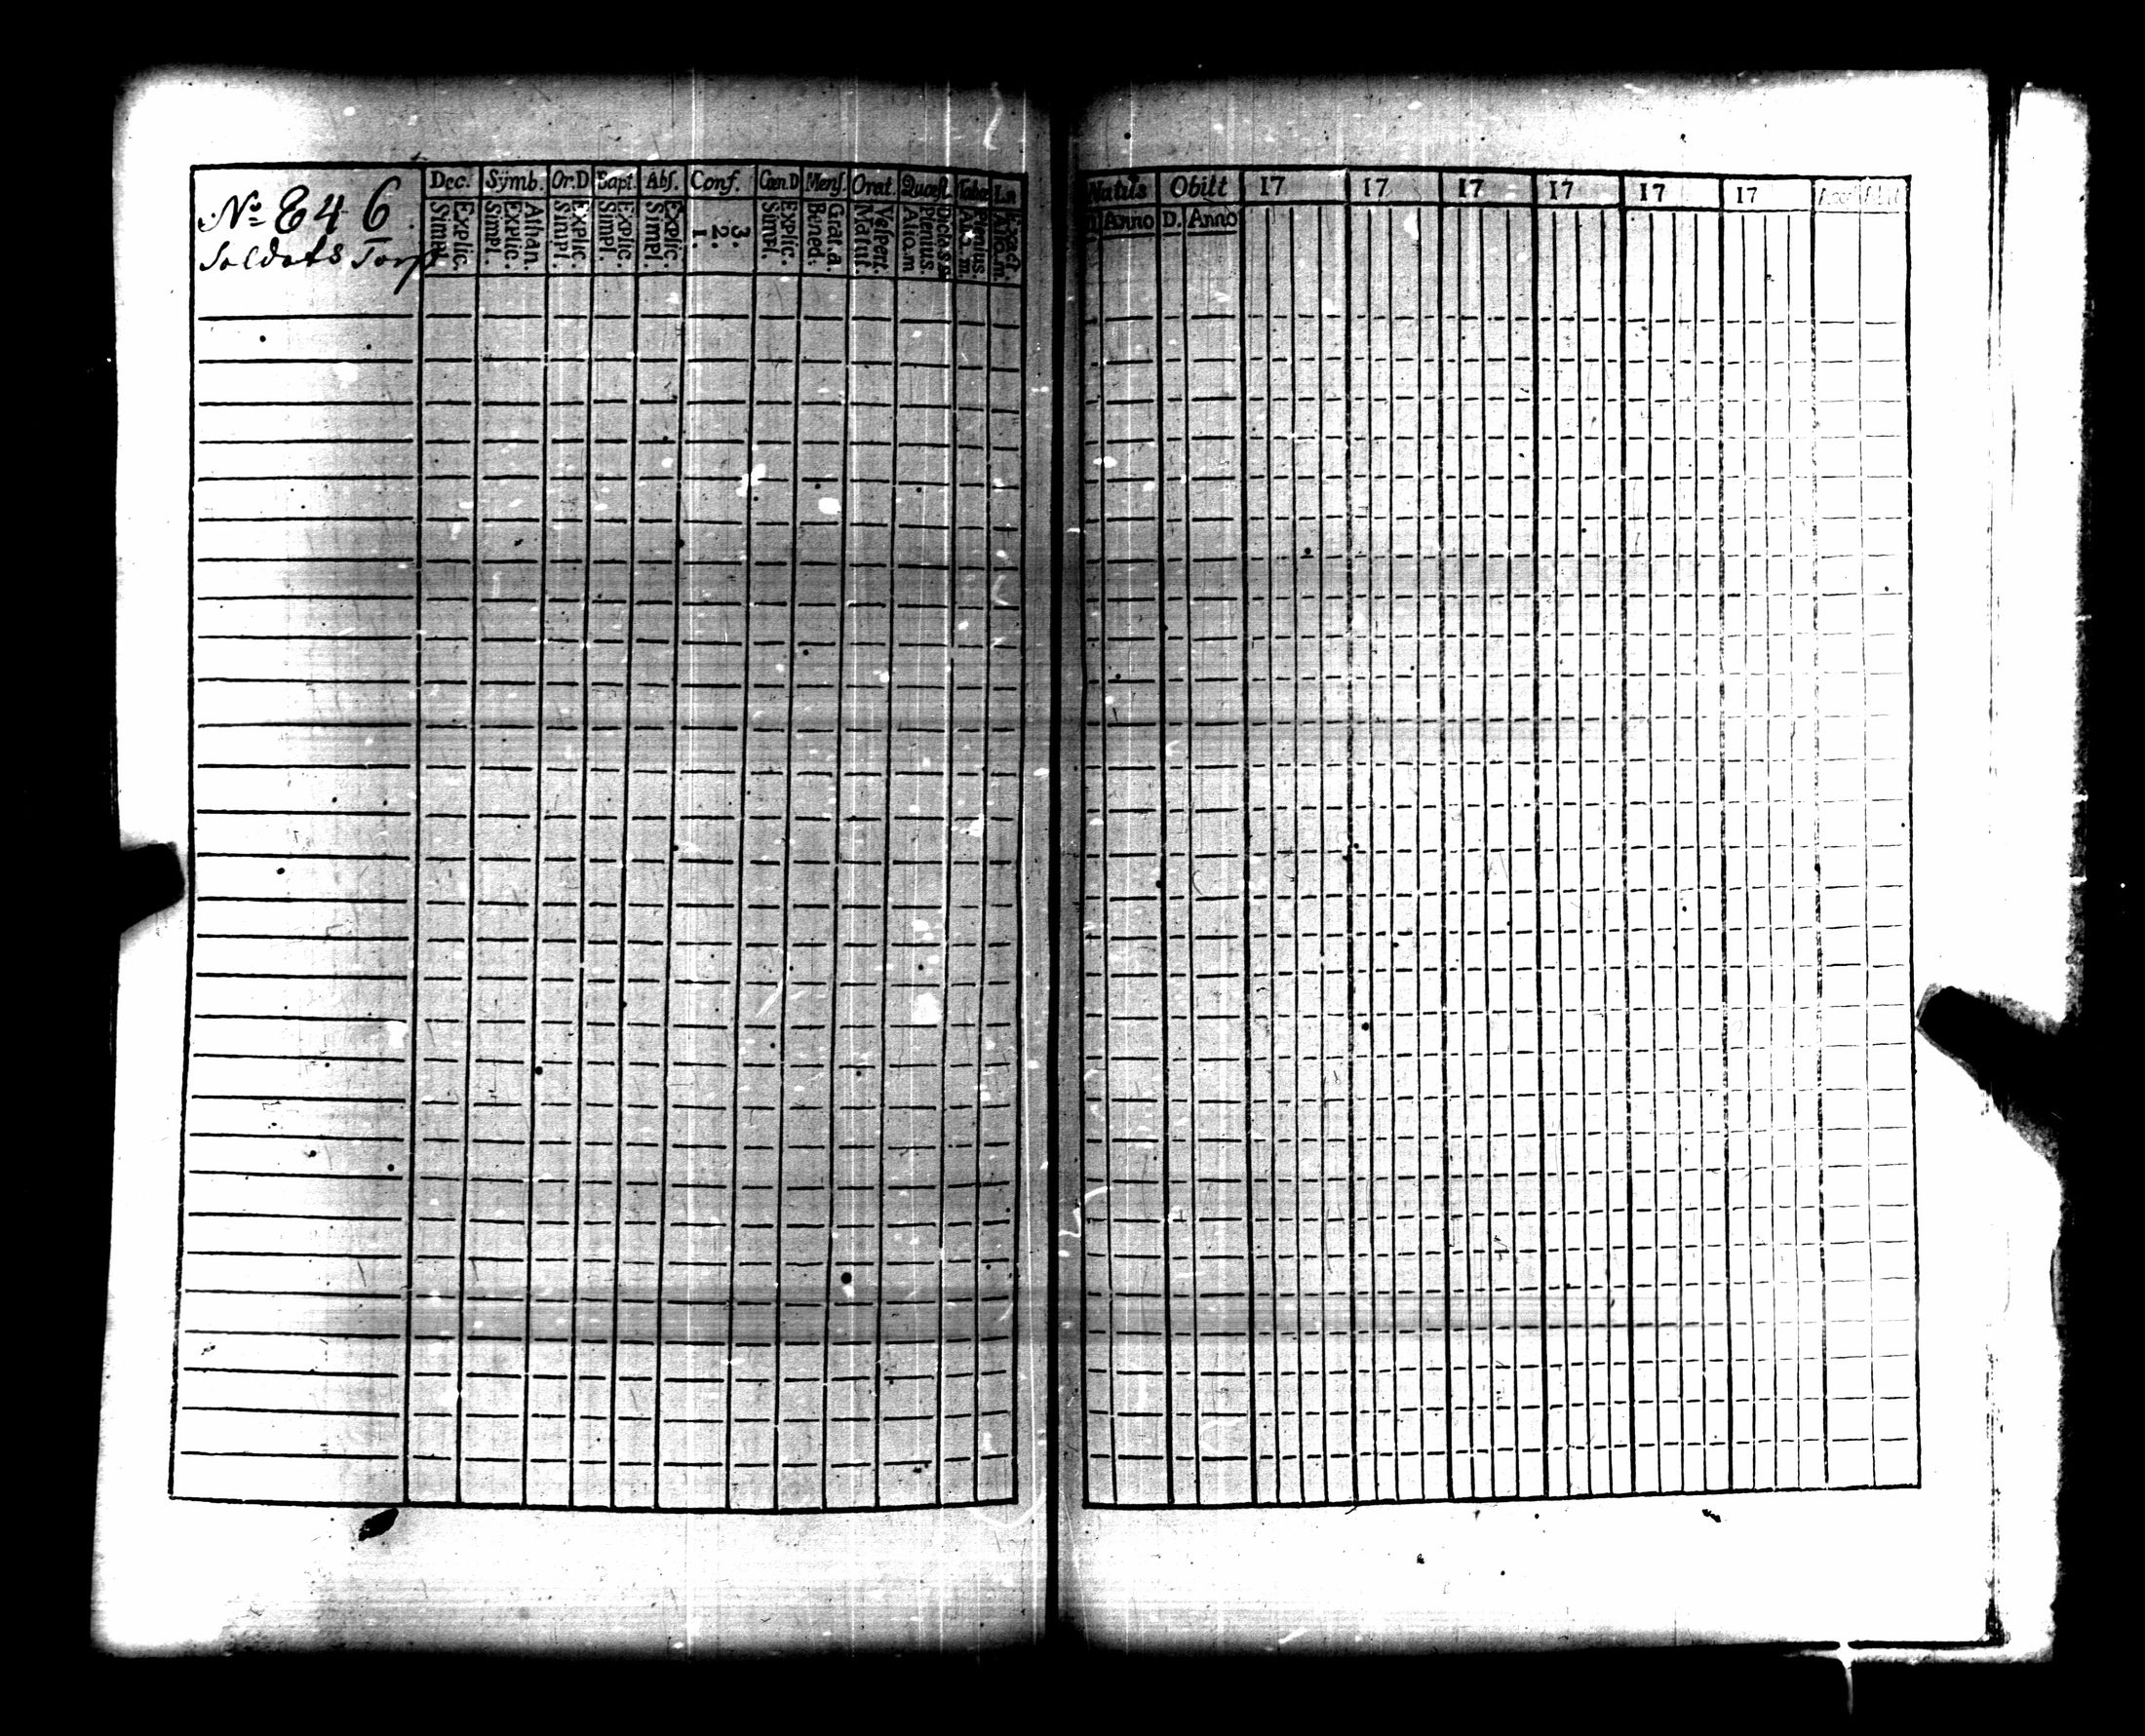 No E 4 6
Soldats Torp
Dec. Symb. Or.D Bapt. Abs. Conf. Cœn.D Mens. Orat. Quæst. Tabu La
Simpl. Explic. Simpl. Explic. Athan. Simpl. Explic. Simpl. Explic. Simpl. Explic. 1. 2. 3. Simpl. Explic. Bened. Grat. a. Matut. Vespert. Alio.m Plenius. Dicta s.s. Plenius. Alio.m. Exact.
Natus Obiit 17 17 17 17 17 17
D. Anno D. Anno